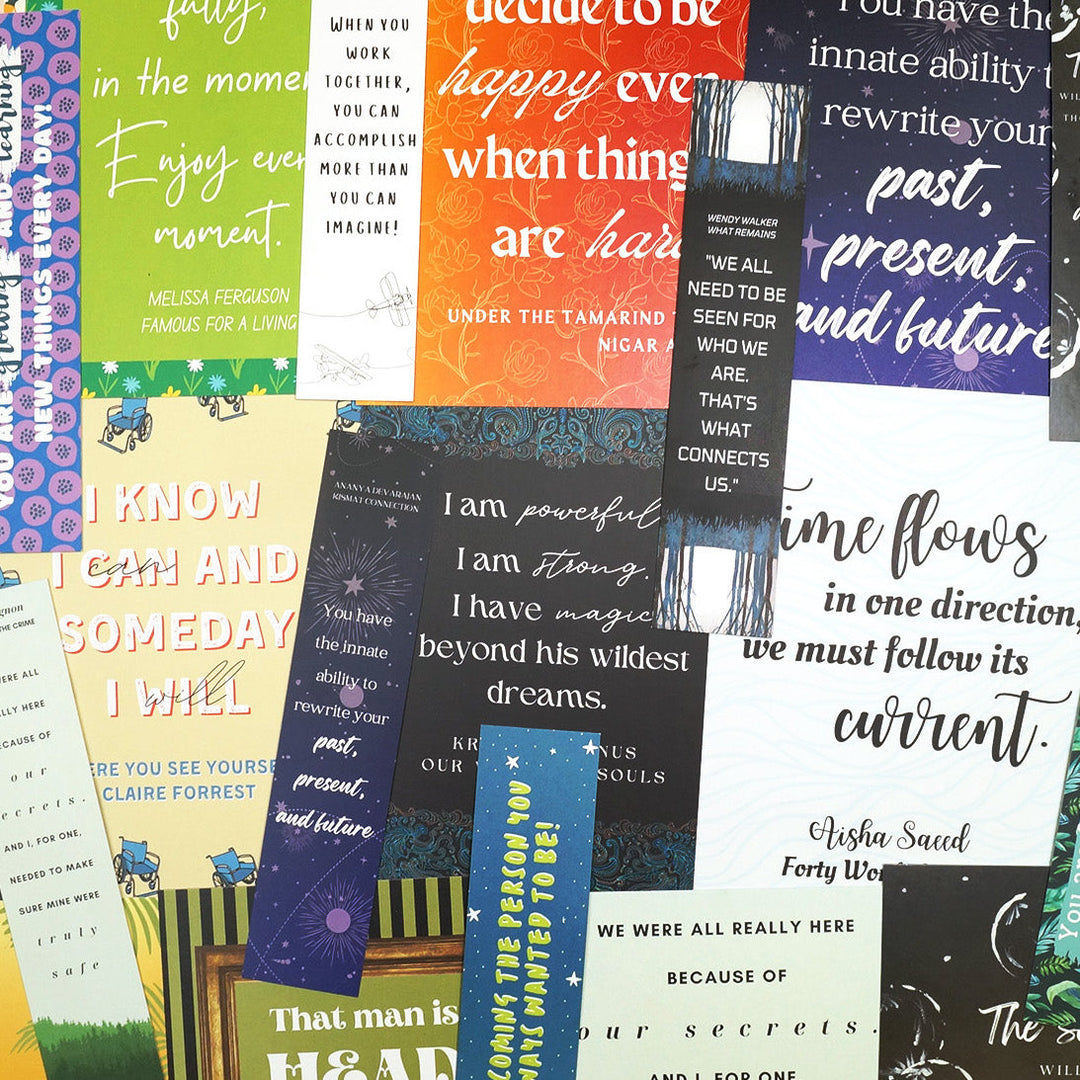 YOU ARE growing AND learning
NEW THINGS EVERY DAY!
fully,
in the momen
Enjoy ever
moment.
MELISSA FERGUSON
FAMOUS FOR A LIVING
WHEN YOU
WORK
TOGETHER,
YOU CAN
ACCOMPLISH
MORE THAN
YOU CAN
IMAGINE!
decide to be
happy even
when thing
are hard
UNDER THE TAMARIND T
NIGAR A
WENDY WALKER
WHAT REMAINS
"WE ALL
NEED TO BE
SEEN FOR
WHO WE
ARE.
THAT'S
WHAT
CONNECTS
US."
You have the
innate ability t
rewrite your
past,
present,
and future
WIL
TH
I KNOW
I CAN AND
can
SOMEDAY
I WILL
will
ERE YOU SEE YOURSE
CLAIRE FORREST
gnon
THE CRIME
WERE ALL
ALLY HERE
ECAUSE OF
our
secrets.
AND I, FOR ONE,
NEEDED TO MAKE
SURE MINE WERE
truly
safe
ANANYA DEVARAJAN
KISMAT CONNECTION
You have
the innate
ability to
rewrite your
past,
present,
and future
I am powerful
I am strong.
I have magic
beyond his wildest
dreams.
KR NUS
OUR SOULS
ime flows
in one direction,
we must follow its
current.
Aisha Saeed
Forty Wor
That man is
HEAD
COMING THE PERSON YOU
WAYS WANTED TO BE!
WE WERE ALL REALLY HERE
BECAUSE OF
our secrets.
AND I, FOR ONE
The s
WILL
You a